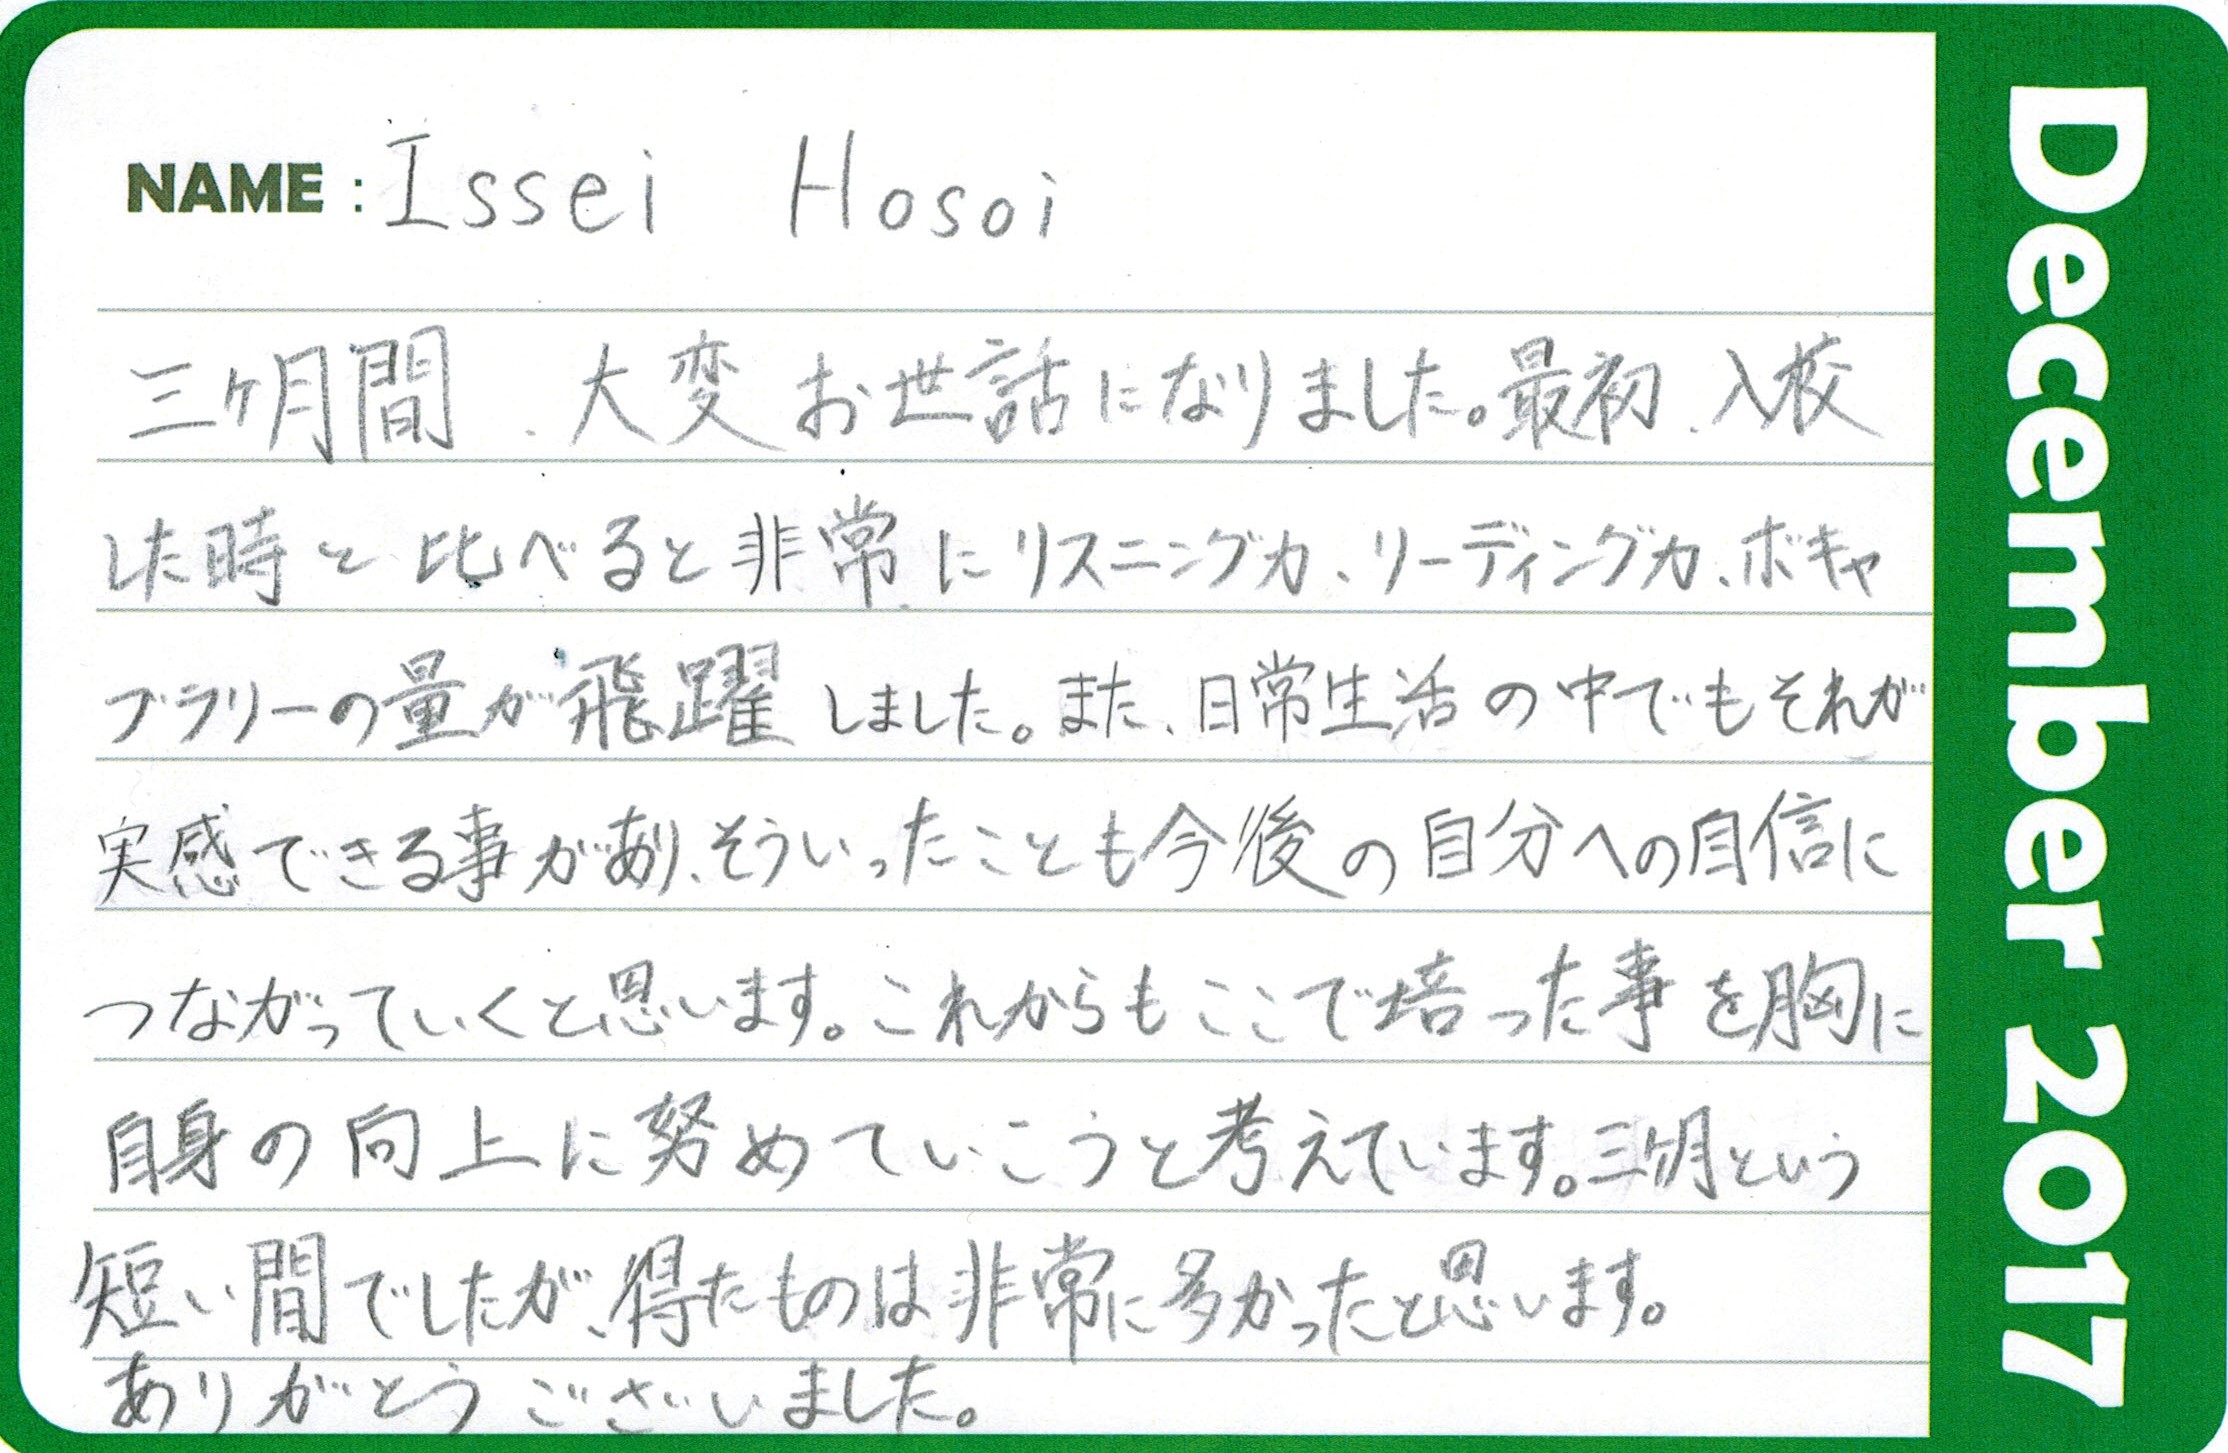 NAME : Issei Hosoi
三ヶ月間、大変お世話になりました。最初、入校
した時と比べると非常にリスニング力、リーディング力、ボキャ
ブラリーの量が飛躍しました。また、日常生活の中でもそれが
実感できる事があり、そういったことも今後の自分への自信に
つながっていくと思います。これからもここで培った事を胸に
自身の向上に努めていこうと考えています。三ヶ月という
短い間でしたが、得たものは非常に多かったと思います。
ありがとうございました。
December 2017